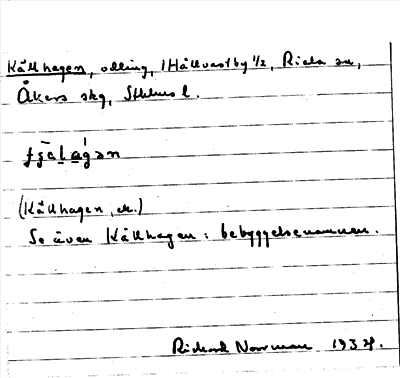 Källhagen, odling, 1 Hållvastby ½, Riala sn,
Åkers skg, Sthlms l.
(Källhagen, ek.)
Se även Källhagen: bebyggelsenamnen.
Rickard Norrman 1934.